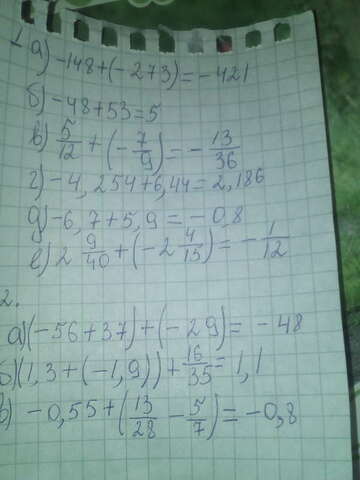 1. а) -148+(-273)=-421
б) -48+53=5
в) 5/12 + (-7/9) = -13/36
г) -4,254+6,44=2,186
д) -6,7+5,9=-0,8
е) 2 9/40 + (-2 4/15) = -1/12
2.
а) (-56+37)+(-29)=-48
б) (1,3+(-1,9))+16/35=1,1
в) -0,55+(13/28-5/7)=-0,8